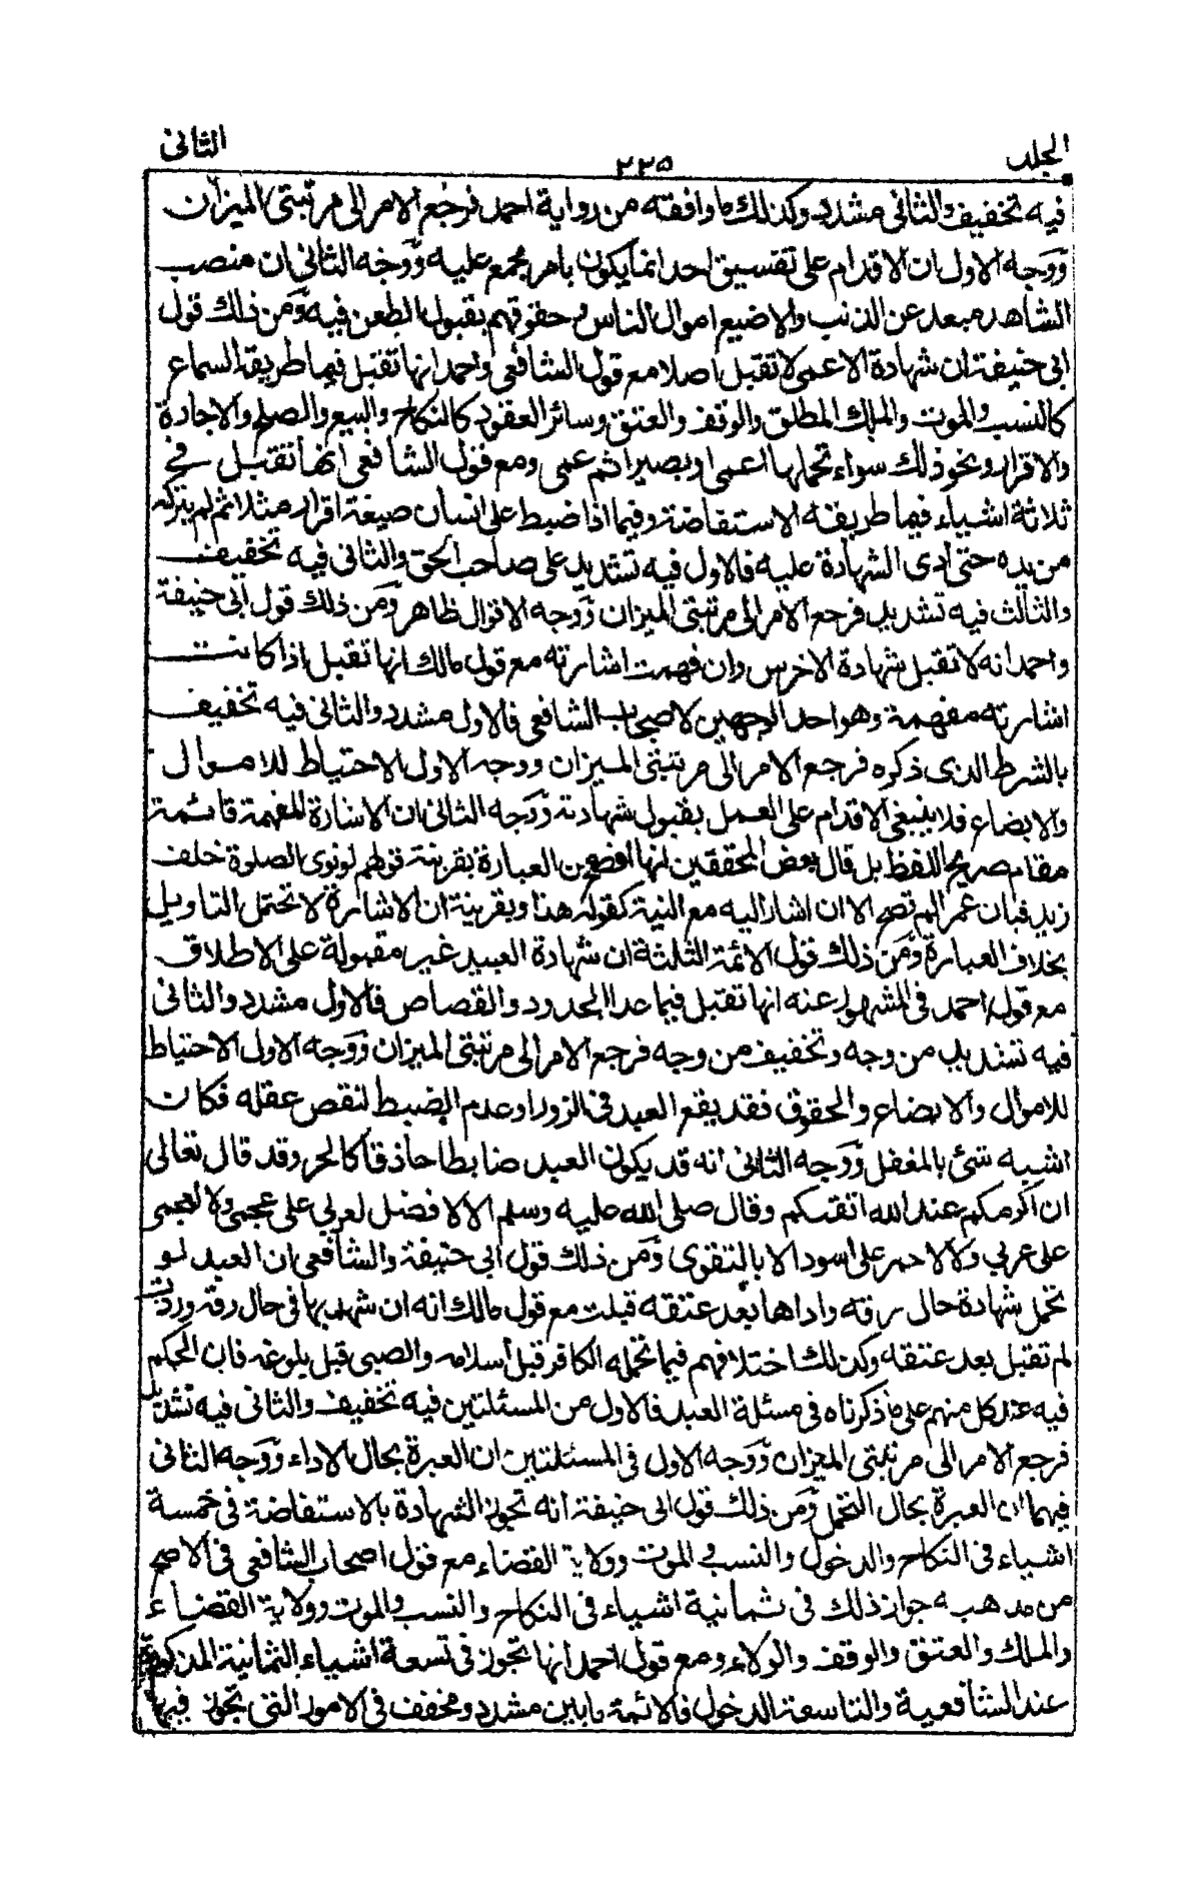 الجلد
٢٢٥
الثانى
فيه تخفيف والثانى مشدد وكذلك ما وافقه من رواية احمد فرجع الامر الى مرتبتى الميزان
ووجه الاول ان الاقدام على تفسيق احد انما يكون بامر مجمع عليه ووجه الثانى ان منصب
الشاهد مبعد عن الذنب والا ضيع اموال الناس وحقوقهم بقبول الطعن فيه ومن ذلك قول
ابى حنيفة ان شهادة الاعمى لا تقبل اصلا مع قول الشافعى واحمد انها تقبل فيما طريقه السماع
كالنسب والموت والملك المطلق والوقف والعتق وسائر العقود كالنكاح والبيع والصلح والاجارة
والاقرار ونحو ذلك سواء تحملها اعمى او بصيرا ثم عمى ومع قول الشافعى انها تقبل فى
ثلاثة اشياء فيما طريقه الاستفاضة وفيما اذا ضبط على انسان صيغة اقرار مثلا ثم لم يتركه
من يده حتى أدى الشهادة عليه فالاول فيه تشديد على صاحب الحق والثانى فيه تخفيف
والثالث فيه تشديد فرجع الامر الى مرتبتى الميزان ووجه الاقوال ظاهر ومن ذلك قول ابى حنيفة
واحمد انه لا تقبل شهادة الاخرس وان فهمت اشارته مع قول مالك انها تقبل اذا كانت
اشارته مفهمة وهو احد الوجهين لاصحاب الشافعى فالاول مشدد والثانى فيه تخفيف
بالشرط الذى ذكره فرجع الامر الى مرتبتى الميزان ووجه الاول الاحتياط للاموال
والابضاع فلا ينبغى الاقدام على العمل بقبول شهادته ووجه الثانى ان الاشارة المفهمة قائمة
مقام صريح اللفظ بل قال بعض المحققين انها افصح من العبارة بقرينة قولهم لو نوى الصلوة خلف
زيد فبان عمرا لم تصح الا ان اشار اليه مع النية كقوله هذا وبقرينة ان الاشارة لا تحتمل التاويل
بخلاف العبارة ومن ذلك قول الائمة الثلثة ان شهادة العبيد غير مقبولة على الاطلاق
مع قول احمد فى المشهور عنه انها تقبل فيما عدا الحدود والقصاص فالاول مشدد والثانى
فيه تشديد من وجه وتخفيف من وجه فرجع الامر الى مرتبتى الميزان ووجه الاول الاحتياط
للاموال والابضاع والحقوق فقد يقع العبد فى الزور او عدم الضبط لنقص عقله فكان
اشبه شئ بالمغفل ووجه الثانى انه قد يكون العبد ضابطا حاذقا كالحر وقد قال تعالى
ان اكرمكم عند الله اتقىكم وقال صلى الله عليه وسلم الا لا فضل لعربي على عجمى ولا لعجمى
على عربي ولا لاحمر على اسود الا بالتقوى ومن ذلك قول ابى حنيفة والشافعى ان العبد لو
تحمل شهادة حال رقه واداها بعد عتقه قبلت مع قول مالك انه ان شهد بها فى حال رقه وردت
لم تقبل بعد عتقه وكذلك اختلافهم فيما تحمله الكافر قبل اسلامه والصبى قبل بلوغه فان الحكم
فيه عند كل منهم على ما ذكرناه فى مسئلة العبد فالاول من المسئلتين فيه تخفيف والثانى فيه تشديد
فرجع الامر الى مرتبتى الميزان ووجه الاول فى المسئلتين ان العبرة بحال الاداء ووجه الثانى
فيهما ان العبرة بحال التحمل ومن ذلك قول ابى حنيفة انه تجوز الشهادة بالاستفاضة فى خمسة
اشياء فى النكاح والدخول والنسب والموت وولاية القضاء مع قول اصحاب الشافعى فى الاصح
من مذهبه جواز ذلك فى ثمانية اشياء فى النكاح والنسب والموت وولاية القضاء
والملك والعتق والوقف والولاء ومع قول احمد انها تجوز فى تسعة اشياء الثمانية المذكورة
عند الشافعية والتاسعة الدخول فالائمة ما بين مشدد ومخفف فى الامور التى تجوز فيها